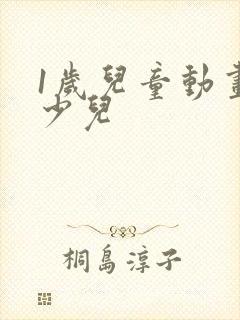 1歲兒童動畫
少兒
桐島淳子